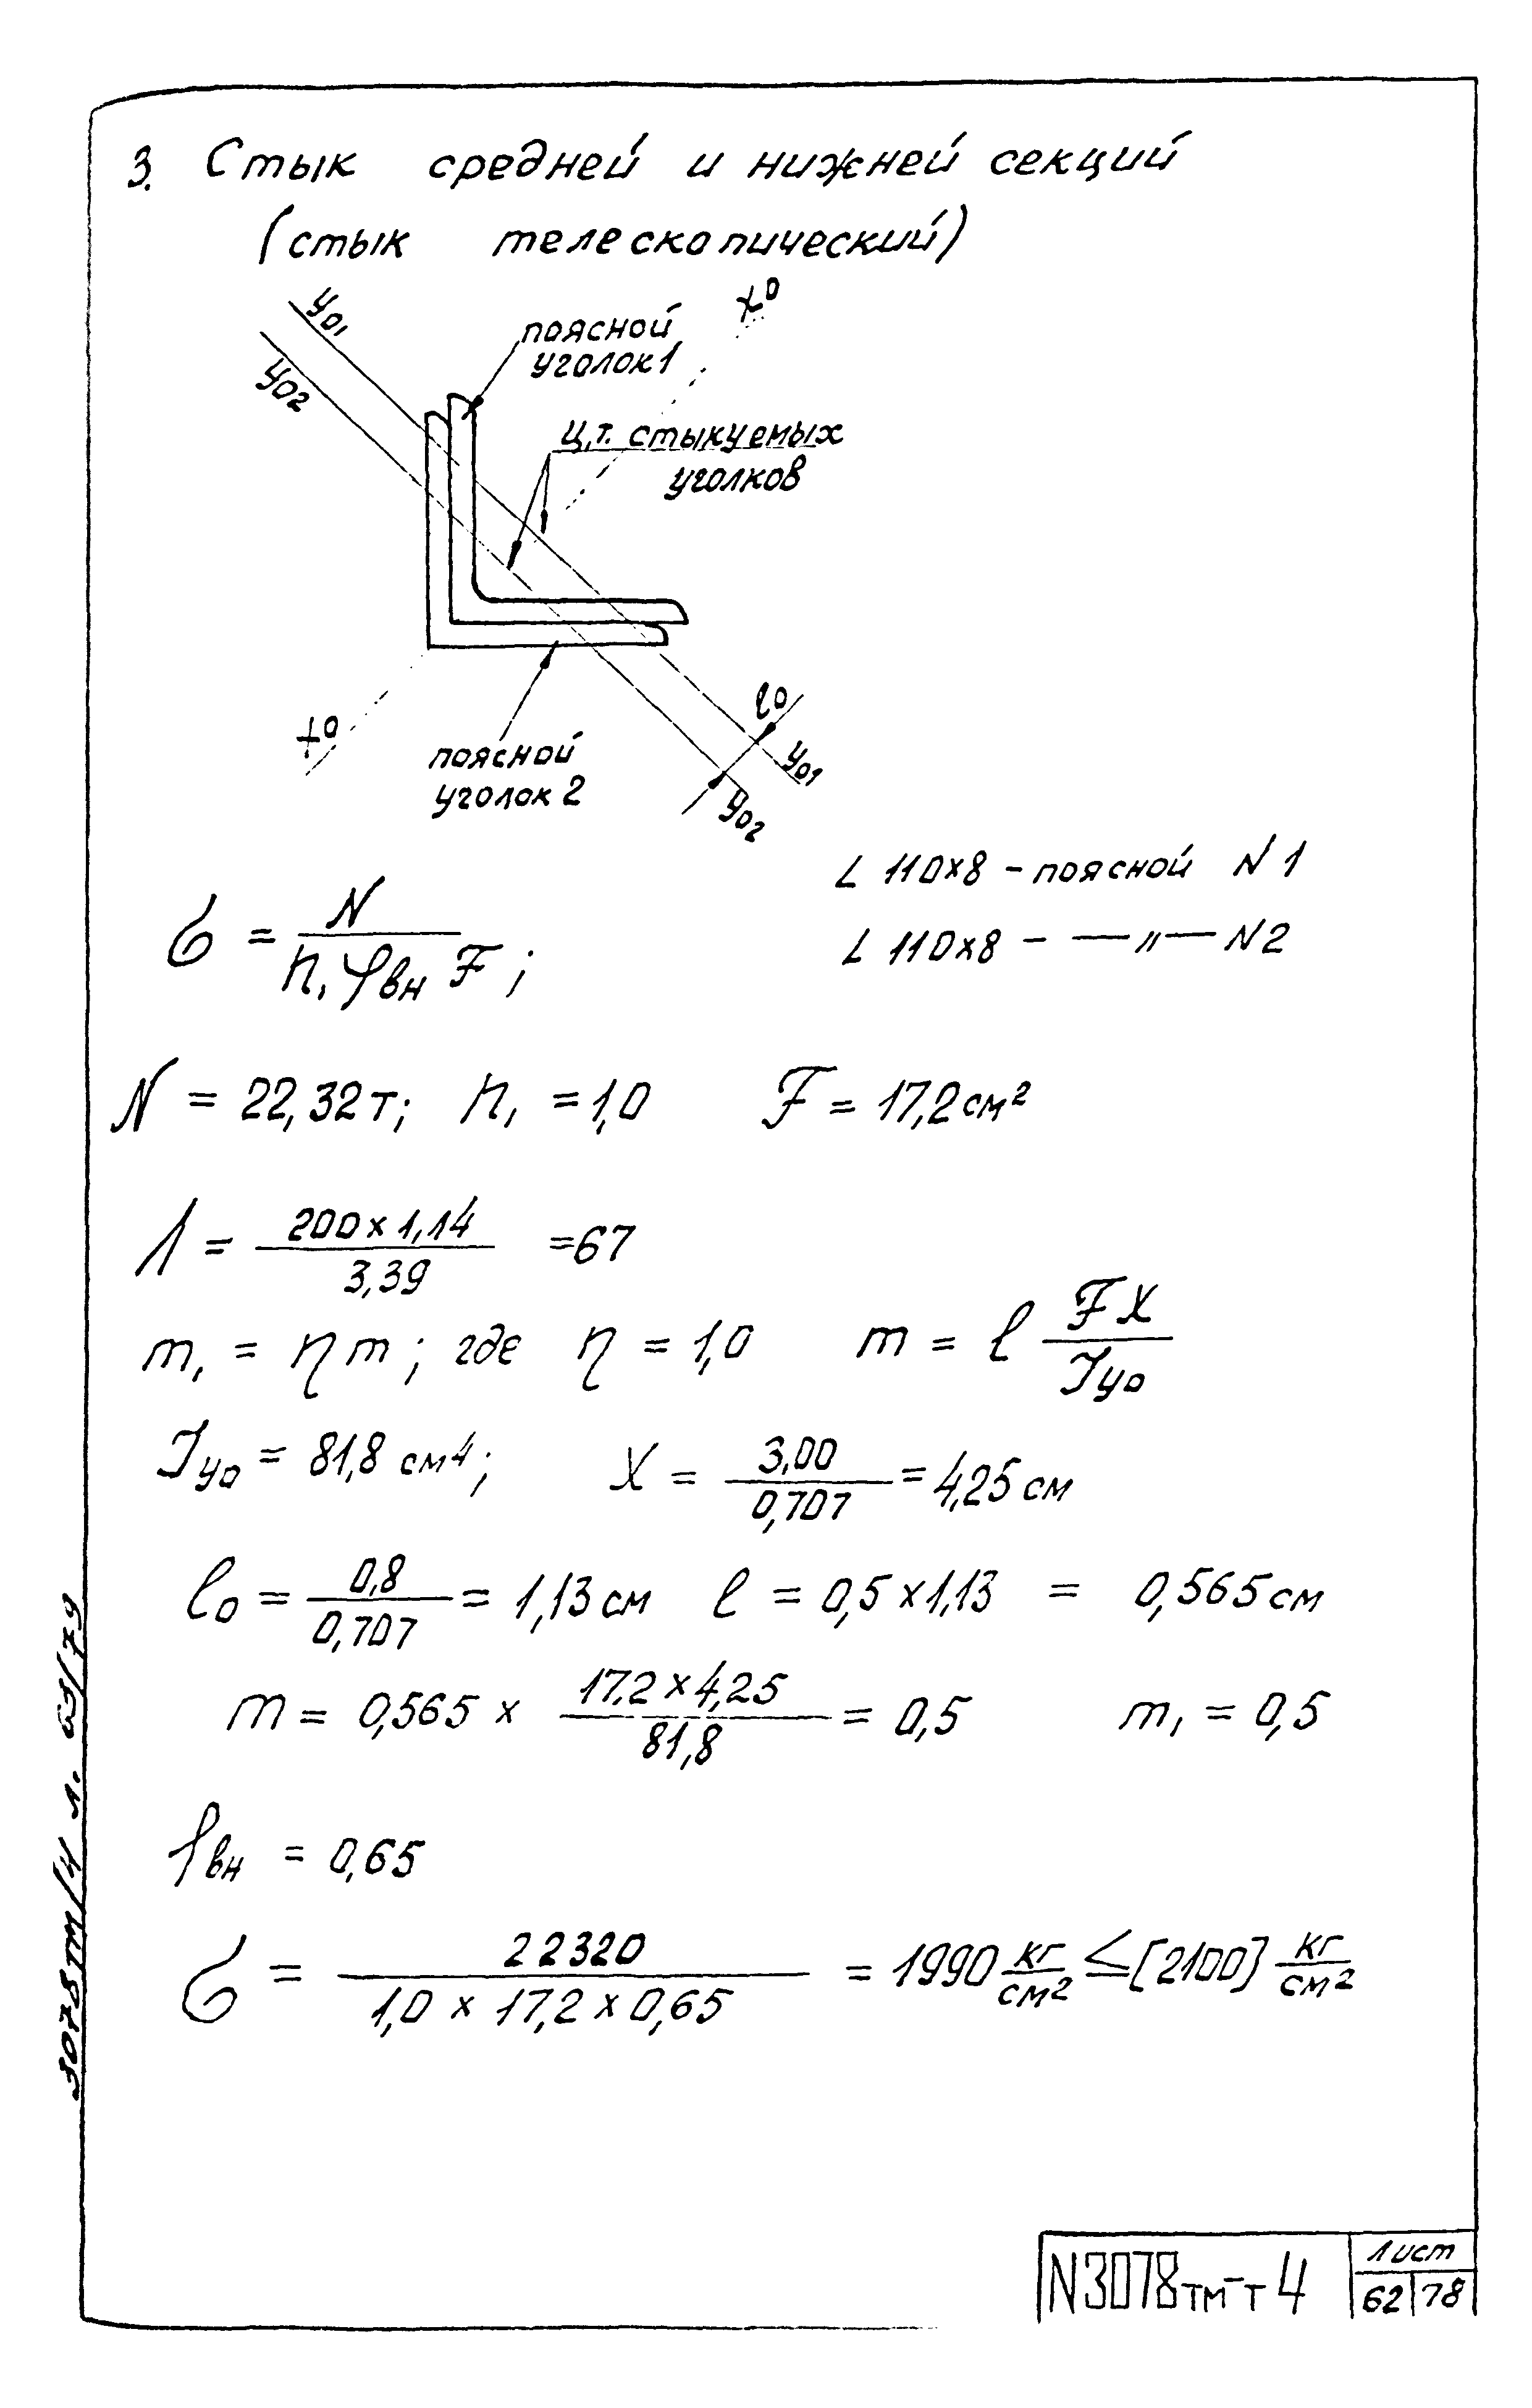 3. Стык средней и нижней секций
(стык телескопический)
y01
x0
y02
поясной
уголок 1
ц.т. стыкуемых
уголков
x0
l0
y01
y02
поясной
уголок 2
L 110x8 - поясной N 1
L 110x8 - —〃— N 2
σ = N / (n₁ φвн F);
N = 22,32т; n₁ = 1,0 F = 17,2 см²
Λ = (200 x 1,14) / 3,39 = 67
m₁ = ηm; где η = 1,0 m = l FX / Jy0
Jy0 = 81,8 см⁴; X = 3,00 / 0,707 = 4,25 см
l0 = 0,8 / 0,707 = 1,13 см l = 0,5 x 1,13 = 0,565 см
m = 0,565 x (17,2 x 4,25) / 81,8 = 0,5 m₁ = 0,5
φвн = 0,65
σ = 22320 / (1,0 x 17,2 x 0,65) = 1990 кг/см² ≤ [2100] кг/см²
3078тм/4 л. 63/79
N3078тм-т4
Лист
62 78